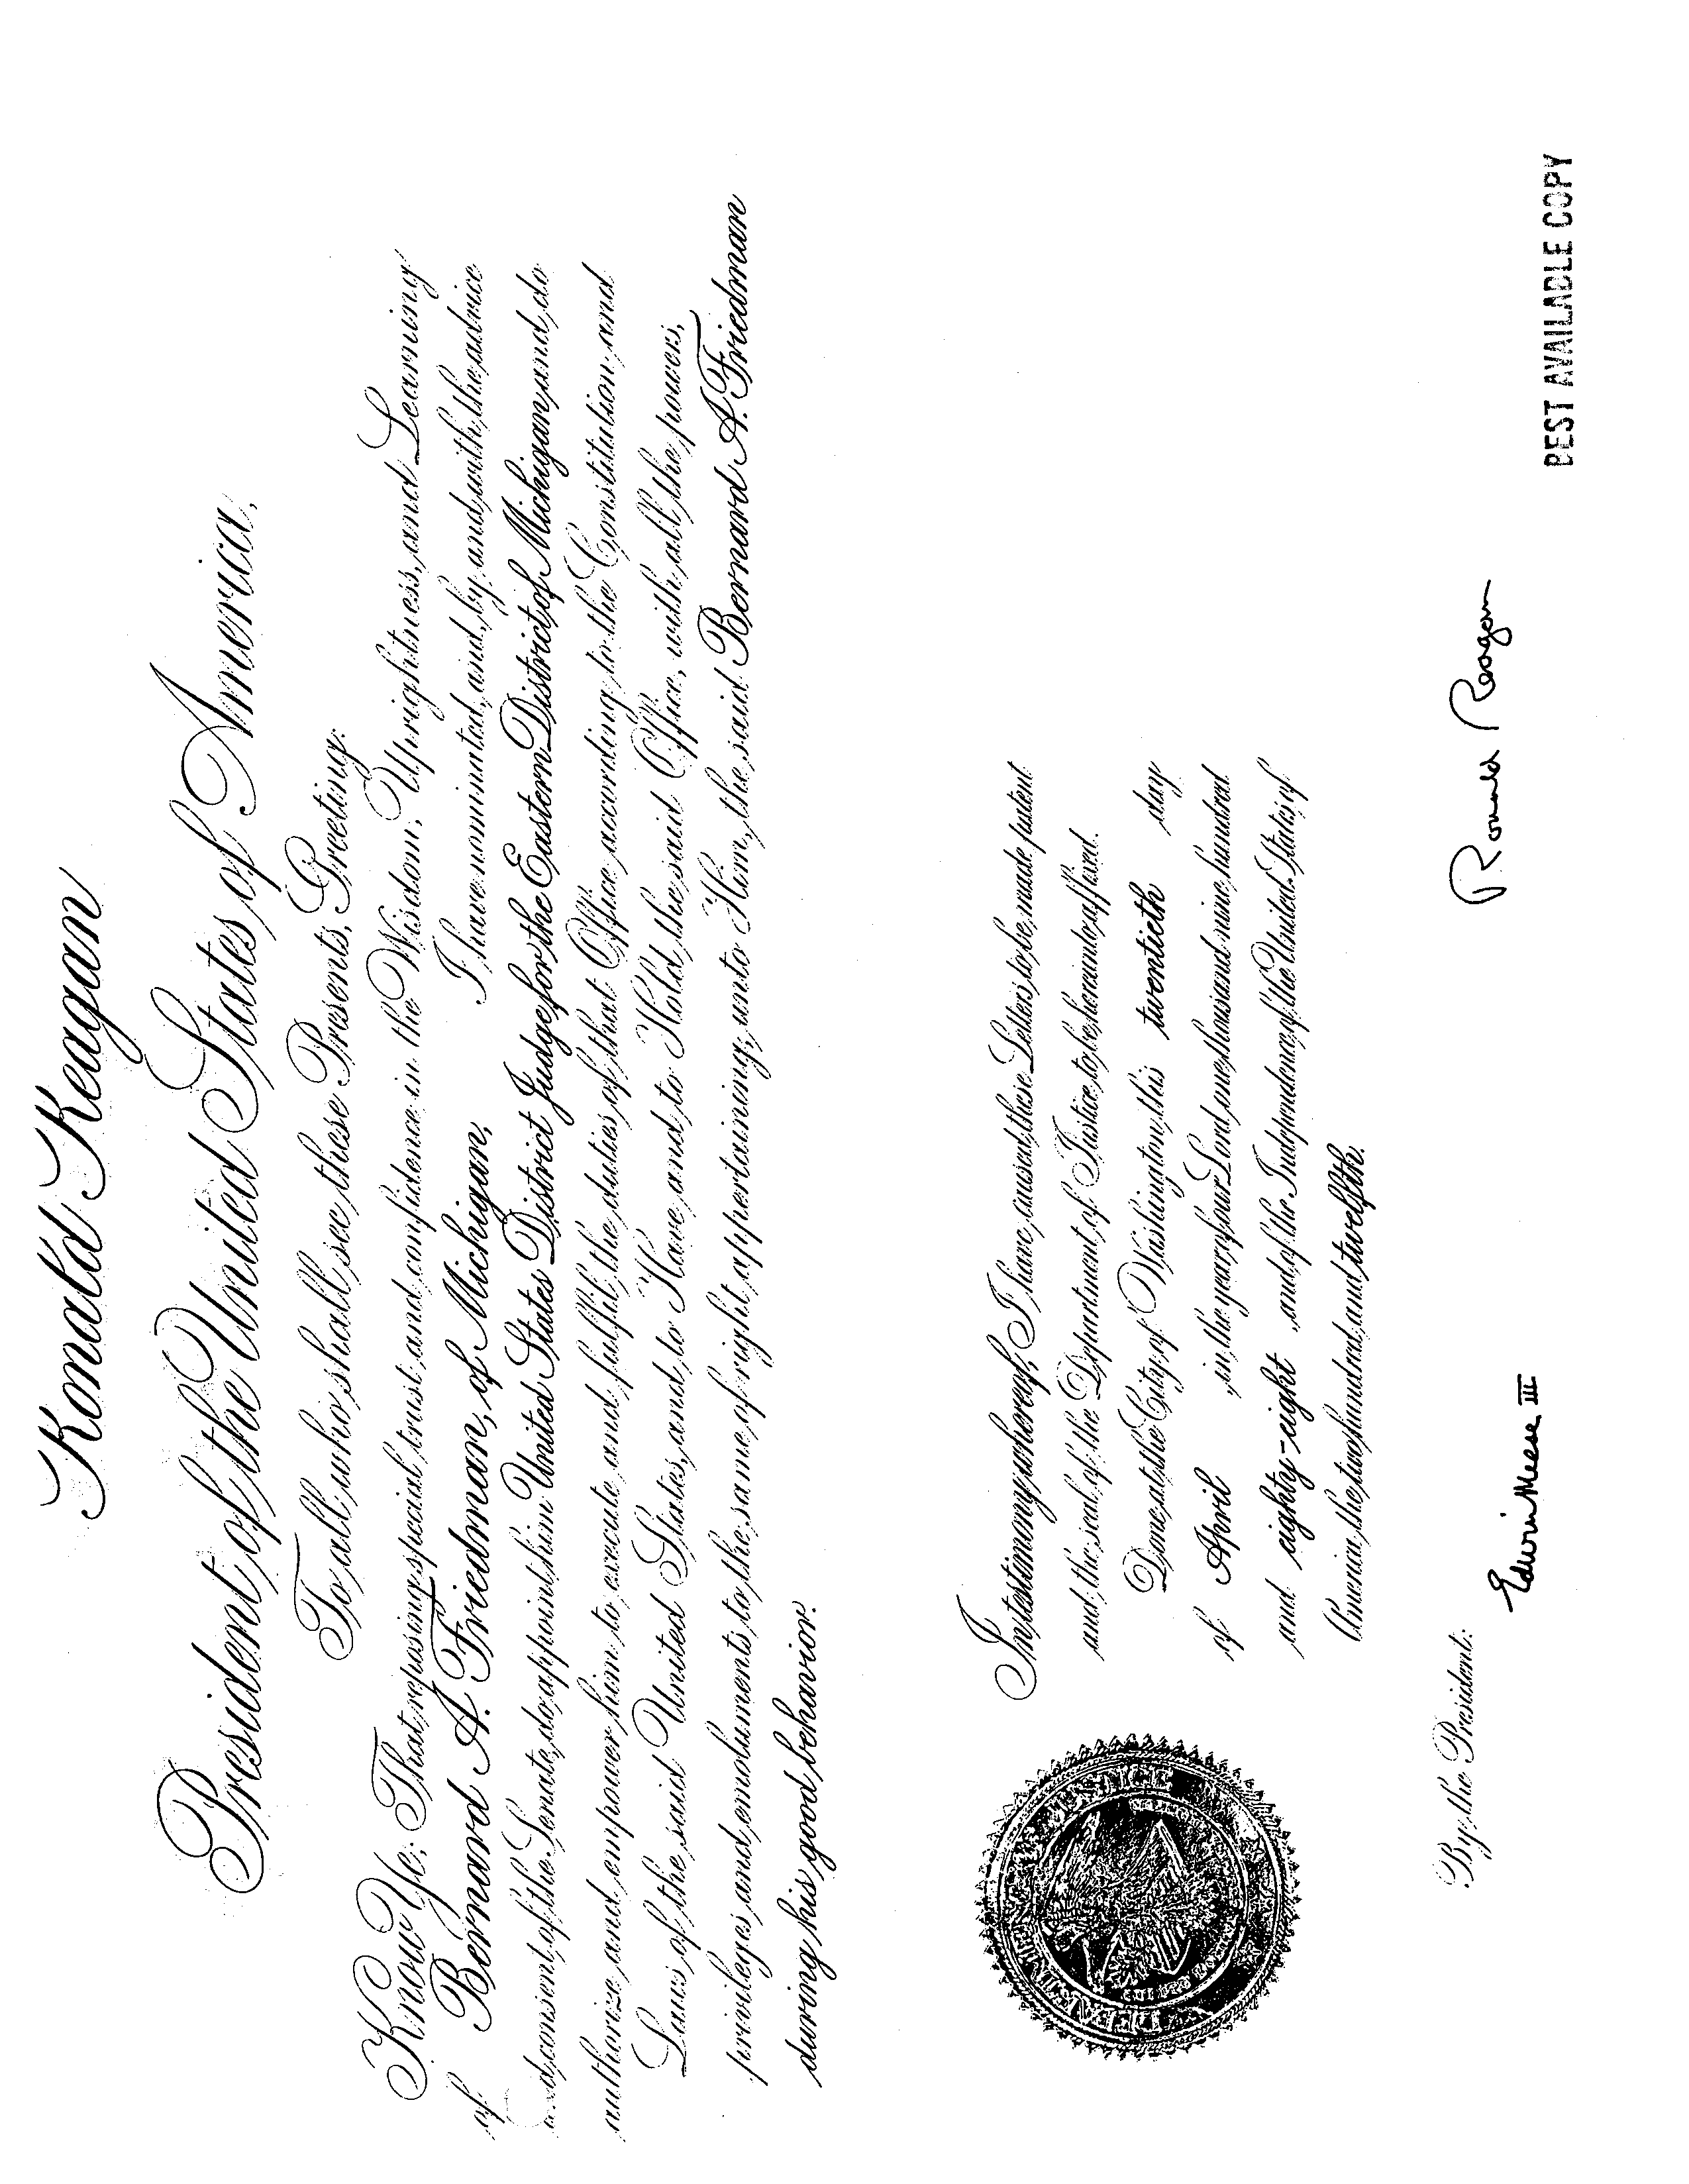 Ronald Reagan
President of the United States of America,
To all who shall see these Presents, Greeting:
Know Ye; That reposing special trust and confidence in the Wisdom, Uprightness, and Learning
of Bernard A. Friedman, of Michigan, I have nominated, and, by and with the advice
and consent of the Senate, do appoint him United States District Judge for the Eastern District of Michigan, and do
authorize and empower him to execute and fulfil the duties of that Office according to the Constitution and
Laws of the said United States, and to Have and to Hold the said Office, with all the powers,
privileges and emoluments to the same of right appertaining, unto Him, the said Bernard A. Friedman
during his good behavior.
In testimony whereof, I have caused these Letters to be made patent
and the seal of the Department of Justice to be hereunto affixed.
Done at the City of Washington, this twentieth day
of April , in the year of our Lord one thousand nine hundred
and eighty-eight , and of the Independence of the United States of
America the two hundred and twelfth.
DEPARTMENT OF JUSTICE
By the President:
Ronald Reagan
Edwin Meese III
BEST AVAILABLE COPY